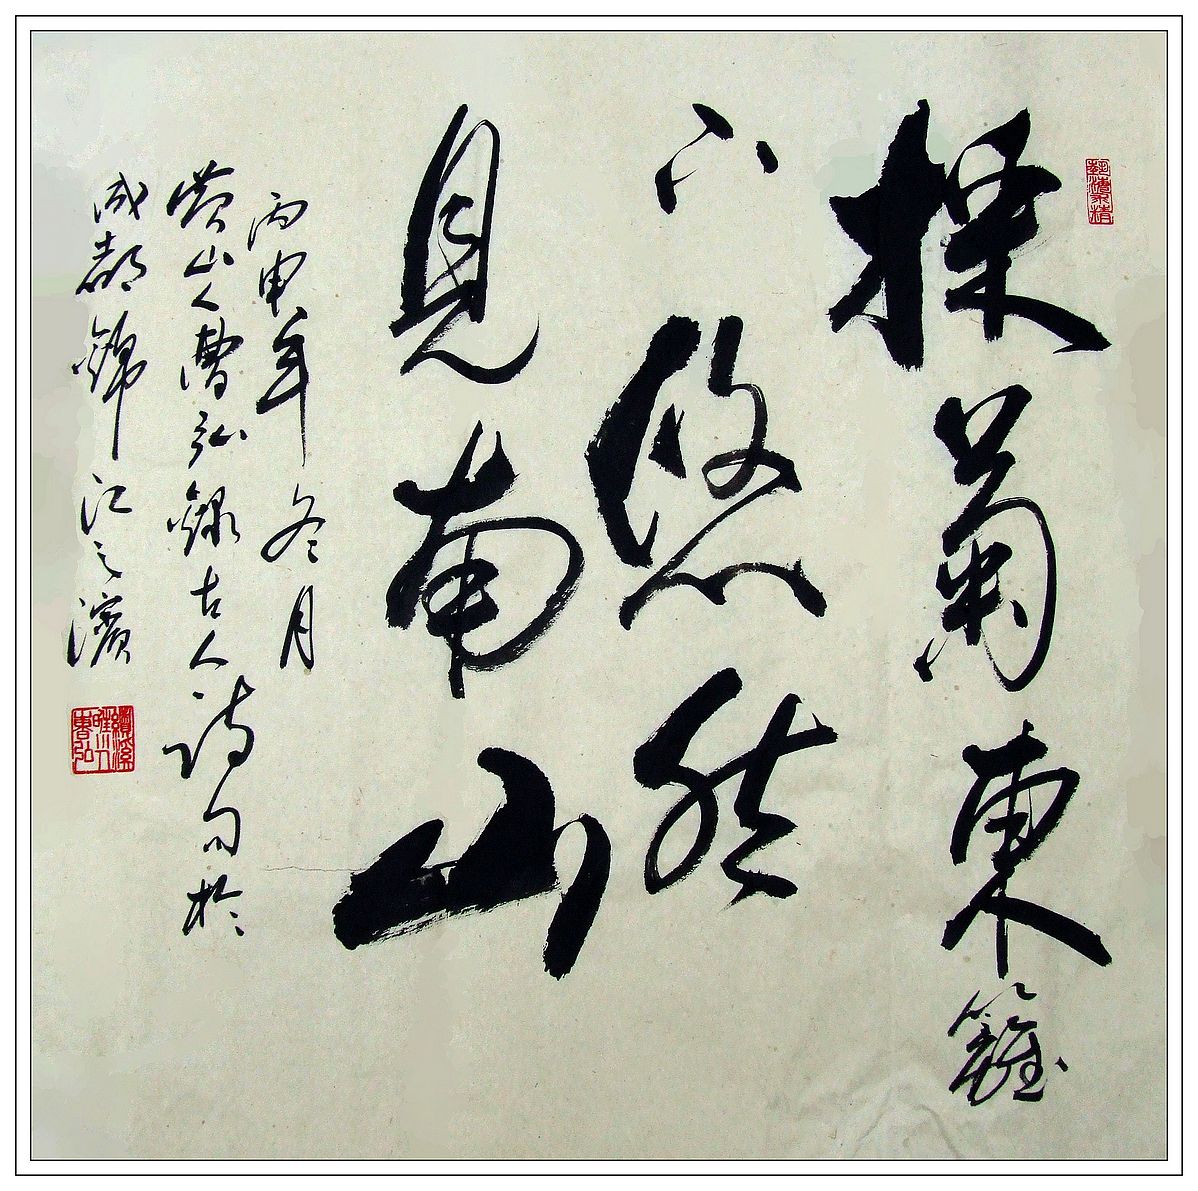 採菊東籬
下悠然
見南山
丙申年冬月
黄山人曹弘錄古人詩句於
成都錦江之濱